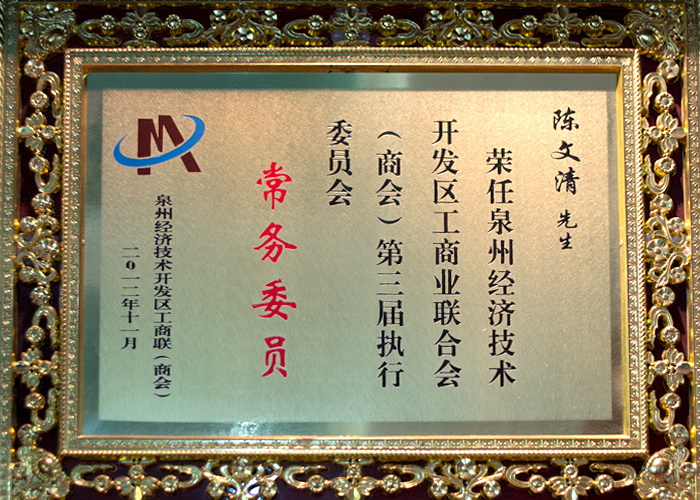 陈文清 先生
荣任泉州经济技术
开发区工商业联合会
（商会）第三届执行
委员会
常务委员
泉州经济技术开发区工商联（商会）
二0一二年十一月